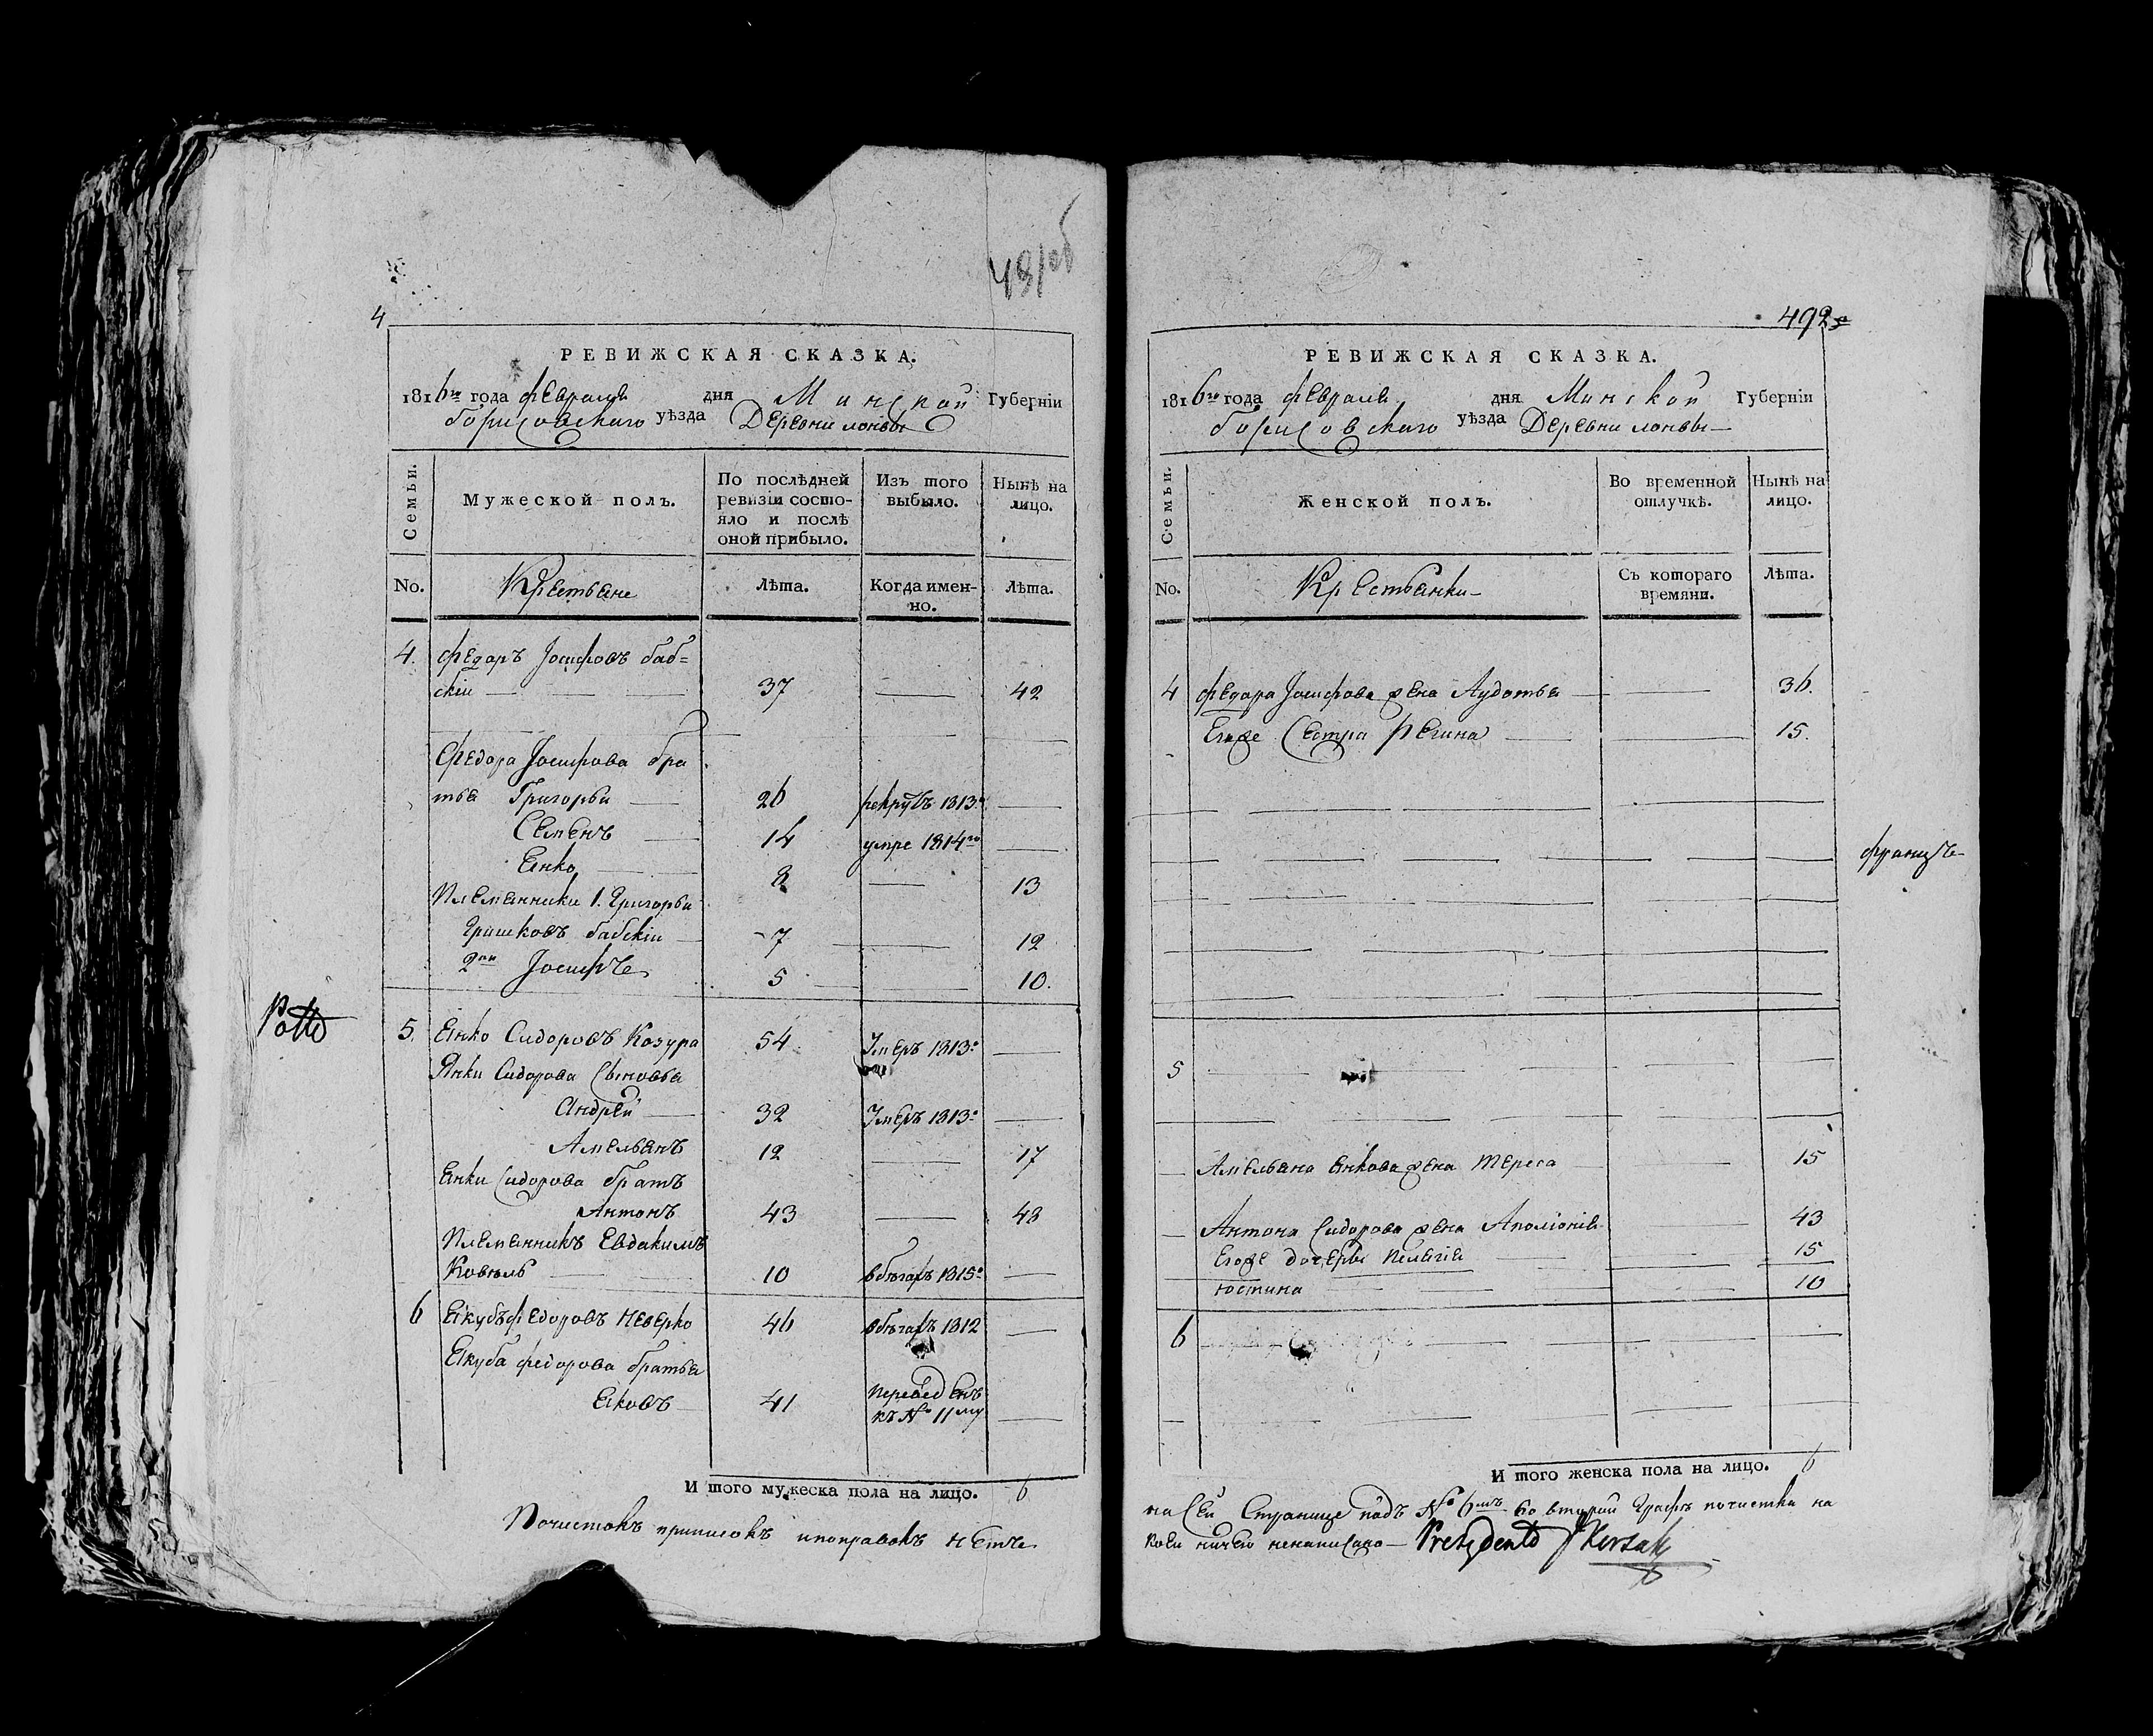 491об
4
РЕВИЖСКАЯ СКАЗКА.
1816го года февраля дня Минской Губерніи
Борисовскаго уѣзда Деревни лонвы
Семьи. Мужеской полъ. По послѣдней ревизіи состояло и послѣ оной прибыло. Изъ того выбыло. Нынѣ на лицо.
No. Крестьяне Лѣта. Когда именно. Лѣта.
4. Федоръ Іосифовъ баб=
скіи 37 42
Федора Іосифова бра
тья Григорьи 26 рекрутъ 1813го
Семенъ 14 умре 1814го
Янко 8 13
Племянники 1. Григорьи
Гришковъ бабскіи 7 12
2ои Іосифъ 5 10.
Potto
5. Янко Сидоровъ Козура 54 Умеръ 1813го
Янки Сидорова Сыновья
Андрей 32 Умеръ 1813го
Амельянъ 12 17
Янки Сидорова братъ
Антонъ 43 48
Племянникъ Евдакимъ
Ковель 10 вбѣгахъ 1815го
6 Якубъ федоровъ Неверко 46 вбѣгахъ 1812
Якуба федорова братья
Яковъ 41 переведенъ
къ No 11му
И того мужеска пола на лицо. 6
Почистокъ приписокъ ипоправокъ нѣтъ
492
РЕВИЖСКАЯ СКАЗКА.
1816го года февраля дня Минской Губерніи
Борисовскаго уѣзда Деревни лонвы
Семьи. Женской полъ. Во временной отлучкѣ. Нынѣ на лицо.
No. Крестьянки Съ котораго времяни. Лѣта.
4 федора Іосифова жена Аудотья 36.
Егоже Сестра Регина 15.
францъ
5
Амельяна янкова жена Тереса 15
Антона Сидорова жена Аполіонія 43
Егоже дочеры Пелагія 15
Юстина 10
6
И того женска пола на лицо. 6
на Сей Странице подъ No 6мъ во второй Графѣ почистка на
коеи ничего ненаписано Prezydent J Korsak